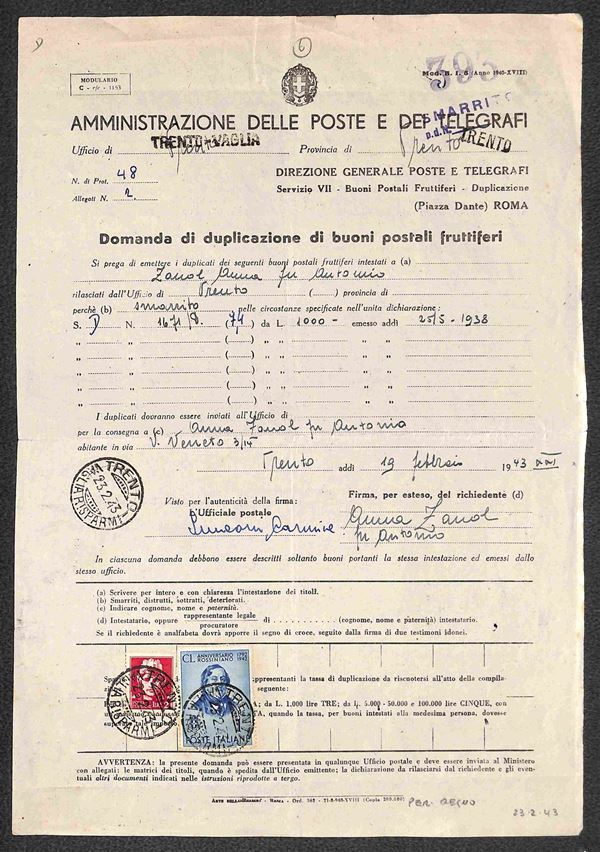 6
MODULARIO
C - rfr - 1153
Mod. B. I. 6 (Anno 1940-XVIII)
395
SMARRITO
AMMINISTRAZIONE DELLE POSTE E DEI TELEGRAFI
Ufficio di TRENTO-VAGLIA Provincia di Trento TRENTO
N. di Prot. 48
Allegati N. 2
DIREZIONE GENERALE POSTE E TELEGRAFI
Servizio VII - Buoni Postali Fruttiferi - Duplicazione
(Piazza Dante) ROMA
Domanda di duplicazione di buoni postali fruttiferi
Si prega di emettere i duplicati dei seguenti buoni postali fruttiferi intestati a (a)
Zanol Anna fu Antonio
rilasciati dall'Ufficio di Trento ( ) provincia di
perchè (b) smarrito pelle circostanze specificate nell'unita dichiarazione:
S. N. 1671/8. (74) da L. 1000- emesso addì 25/5-1938
" " ( ) " " " "
" " ( ) " " " "
" " ( ) " " " "
" " ( ) " " " "
" " ( ) " " " "
I duplicati dovranno essere inviati all'Ufficio di
per la consegna a (c) Anna Zanol fu Antonio
abitante in via V. Veneto 3/IV
Trento addì 19 febbraio 1943 XXI
TRENTO
23.2.43
VAGLIA RISPARMI
Visto per l'autenticità della firma:
L'Ufficiale postale
Firma, per esteso, del richiedente (d)
Anna Zanol
fu Antonio
In ciascuna domanda debbono essere descritti soltanto buoni portanti la stessa intestazione ed emessi dallo
stesso ufficio.
(a) Scrivere per intero e con chiarezza l'intestazione dei titoli.
(b) Smarriti, distrutti, sottratti, deteriorati.
(c) Indicare cognome, nome e paternità.
(d) Intestatario, oppure rappresentante legale
procuratore di (cognome, nome e paternità) intestatario.
Se il richiedente è analfabeta dovrà apporre il segno di croce, seguito dalla firma di due testimoni idonei.
CL ANNIVERSARIO 1792
ROSSINIANO 1942
POSTE ITALIANE
rappresentanti la tassa di duplicazione da riscuotersi all'atto della compila-
seguente:
da L. 1.000 lire TRE; da L. 5.000 - 50.000 e 100.000 lire CINQUE, con
quando la tassa, per buoni intestati alla medesima persona, dovesse
AVVERTENZA: la presente domanda può essere presentata in qualunque Ufficio postale e deve essere inviata al Ministero
con allegati: le matrici dei titoli, quando è spedita dall'Ufficio emittente; la dichiarazione da rilasciarsi dal richiedente e gli even-
tuali altri documenti indicati nelle istruzioni riprodotte a tergo.
PER. REGNO
23-2-43